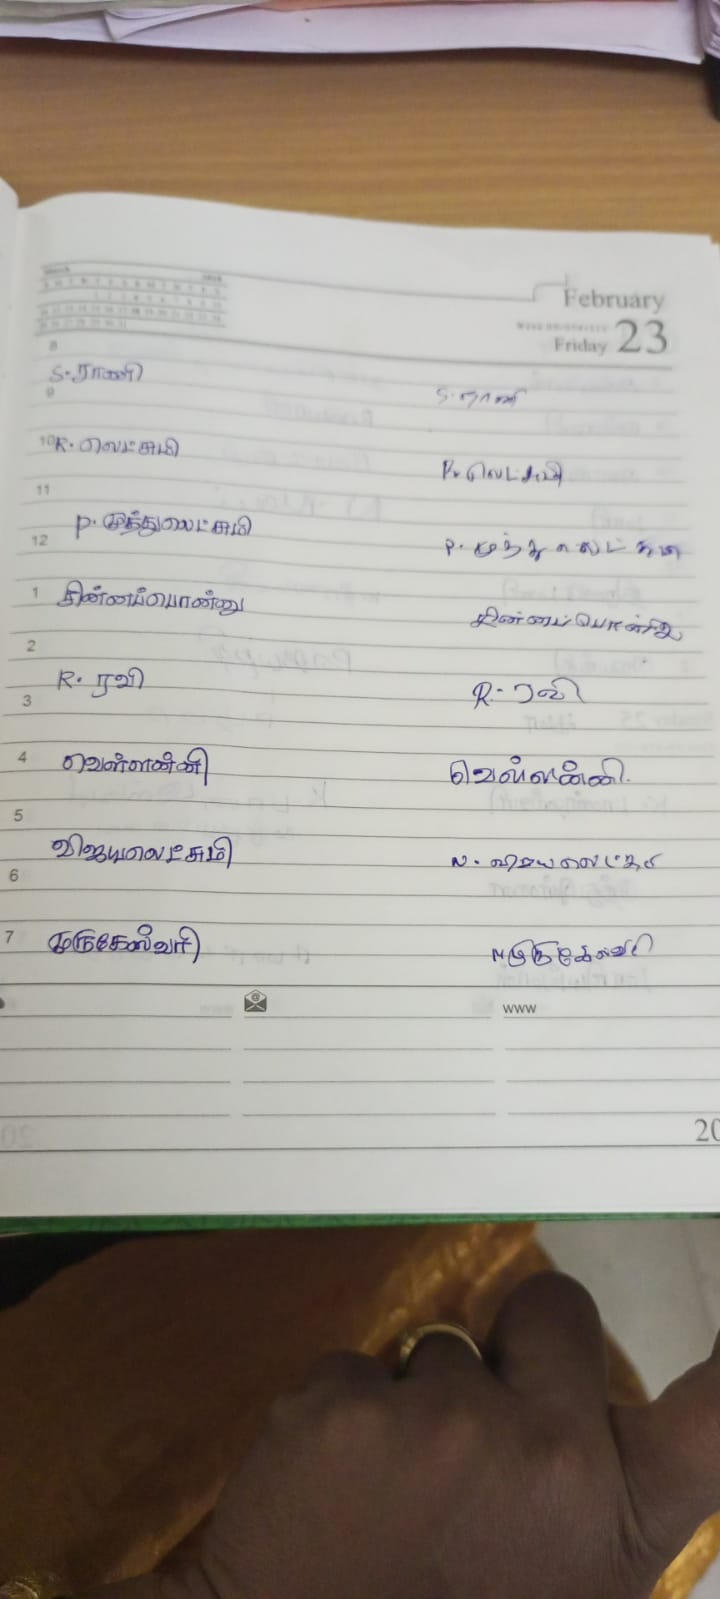 March 2018
February
Friday 23
8
S. ராணி S. ராணி
9
10 R. லெட்சுமி R. லெட்சுமி
11
P. முத்துலெட்சுமி
12 P. முத்து லெட்சுமி
1 சின்னப்பொண்ணு சின்னப்பொண்ணு
2
R. ரவி R. ரவி
3
4 வெள்ளண்ணி வெள்ளண்ணி.
5
விஜயலெட்சுமி N.
6
7 முருகேஸ்வரி M முருகேஸ்வரி
www
20